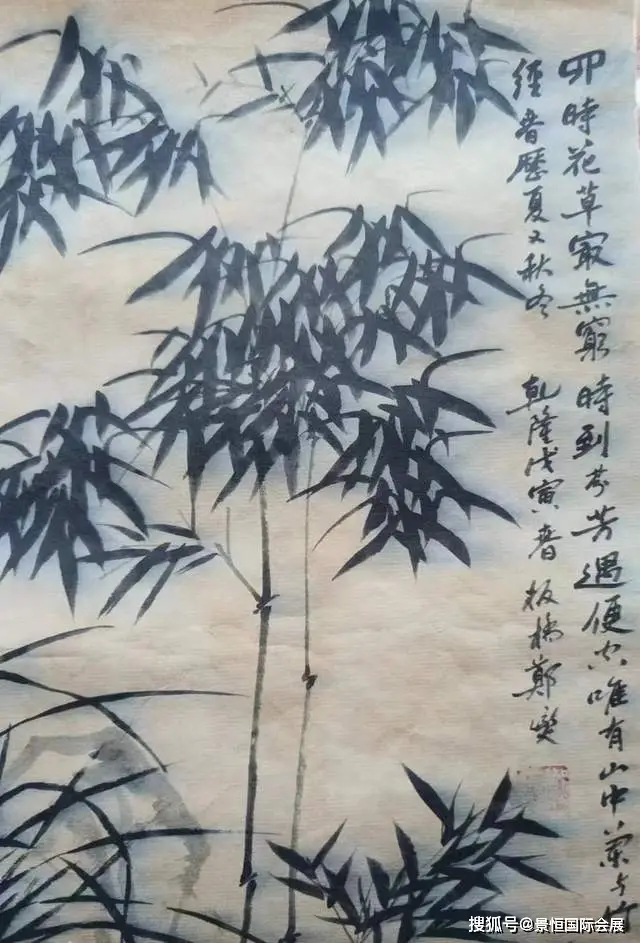 四時花草最無窮時到芬芳遇便空唯有山中蘭與竹
經春歷夏又秋冬 乾隆戊寅春 板橋鄭燮
搜狐号@景恒国际会展